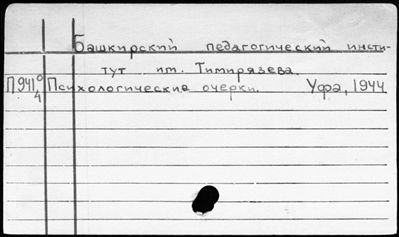 Башкирский педагогический инсти-
тут им. Тимирязева.
П941⁰/4 Психологические очерки. Уфа, 1944